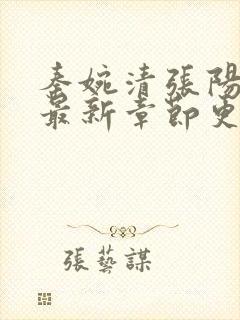 秦婉清張陽
最新章節更
張藝謀